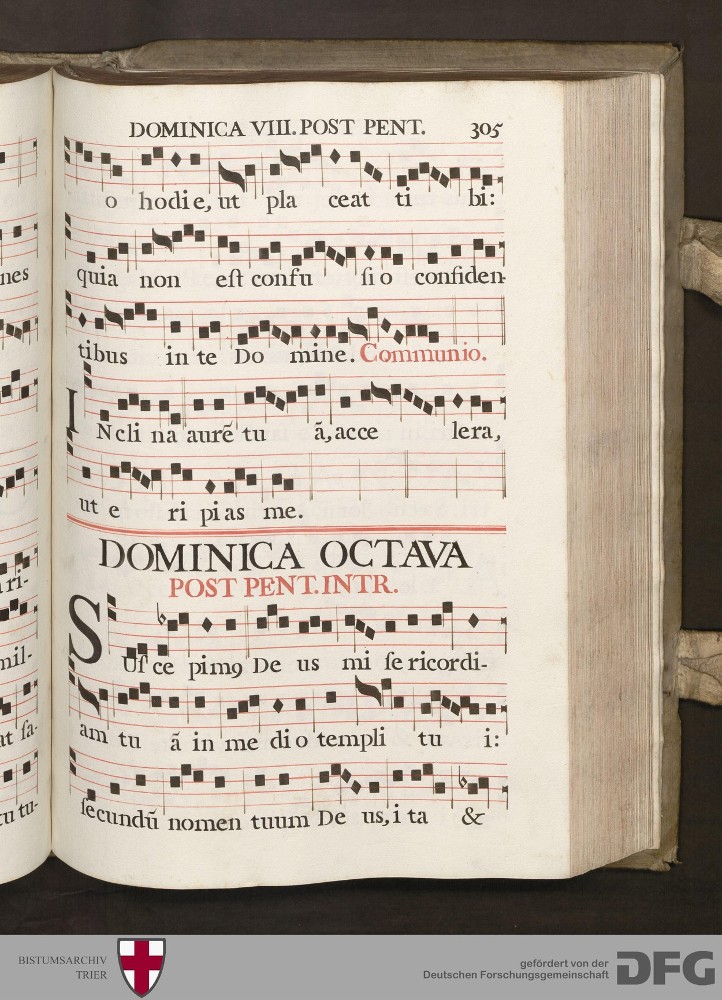 DOMINICA VIII. POST PENT. 305
o hodie, ut pla ceat ti bi:
quia non eſt confu ſio confiden-
tibus in te Do mine. Communio.
INcli na aurẽ tu ã, acce lera,
ut e ri pi as me.
DOMINICA OCTAVA
POST PENT. INTR.
SUſce pimꝯ De us mi ſe ricordi-
am tu ã in me dio templi tu i:
ſecundũ nomen tuum De us, i ta &
nes
ri-
mil-
at ſa-
tu tu-
BISTUMSARCHIV
TRIER
gefördert von der
Deutschen Forschungsgemeinschaft
DFG